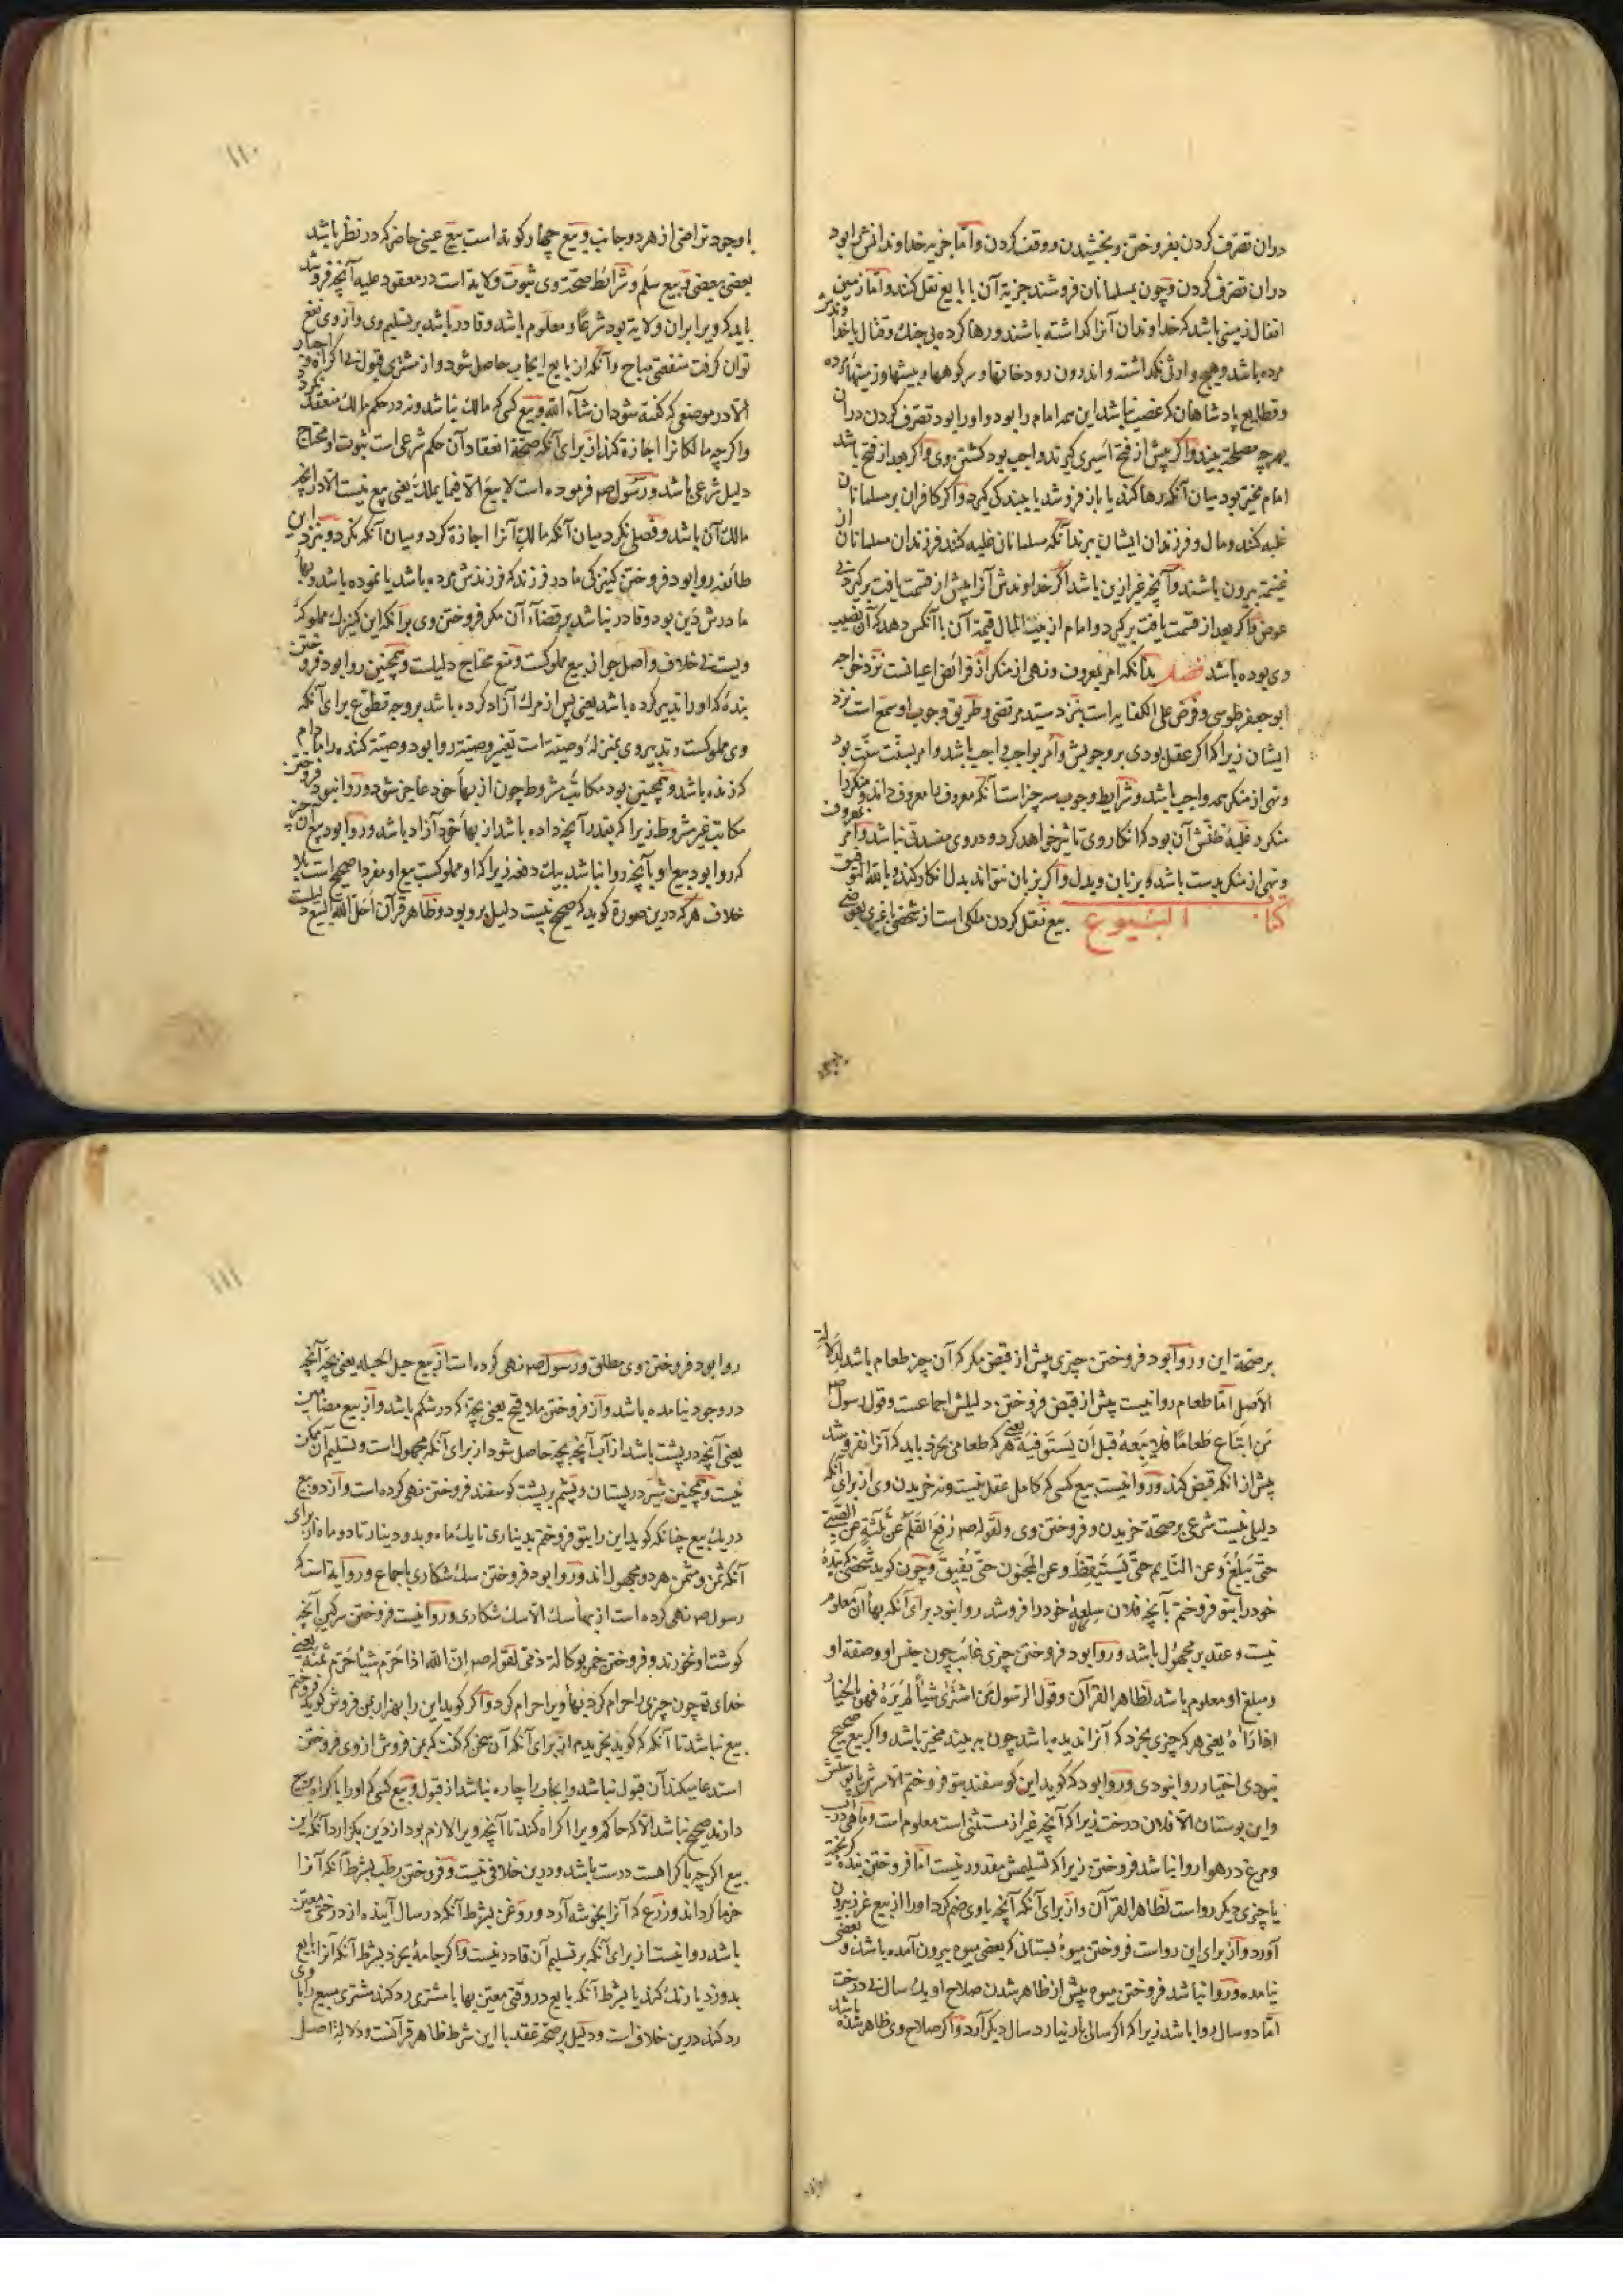 دران تصرف کردن بفروختن و بخشیدن و وقف کردن و اما جزیه خداوندانش را بود
دران تصرف کردن و چون بمسلمانان فروشند جزیه آن با بایع نقل کنند و اما زمین
انفال زمینی باشد که خداوندان آنرا کذاشته باشند و رها کرده بی جنک و قتال یا خداوندش
مرده باشد و هیچ وارثی نکذاشته و اندرون رودخانها و سر کوهها و بیشها و زمینهاء مرده
و قطایع پادشاهان که غصب نباشد این همه امام را بود و او را بود تصرف کردن دران
بهرچه مصلحة بیند و اکر پیش از فتح اسیری کیرند واجب بود کشتن وی و اکر بعد از فتح باشد
امام مخیر بود میان آنکه رها کند یا باز فروشد یا ببندکی کیرد و اکر کافران بر مسلمانان
غلبه کنند و مال و فرزندان ایشان ببرند آنکه مسلمانان غلبه کنند فرزندان مسلمانان از
غنیمة بیرون باشند و آنچه غیر ازین باشد اکر خداوندش آنرا پیش از قسمت یافت برکیرد بی
عوض و اکر بعد از قسمت یافت برکیرد و امام از بیت المال قیمة آن با آنکس دهد که آن نصیب
وی بوده باشد فصل بدانکه امر بمعروف و نهی از منکر از فرائض اعیانست نزد خواجه
ابو جعفر طوسی و فرض علی الکفایه است بنزد سید مرتضی و طریق وجوب او سمع است نزد
ایشان زیرا که اکر عقل بودی بر وجوبش و امر بواجب واجب باشد و امر بسنت سنت بود
و نهی از منکر همه واجب باشد و شرایط وجوب سه چیز است آنکه معروف را معروف داند و منکر را
منکر و غلبهٔ ظنش آن بود که انکار وی تاثیر خواهد کرد و در وی مفسدتی نباشد و امر بمعروف
و نهی از منکر بدست باشد و بزبان و بدل و اکر بزبان نتواند بدل انکار کند و بالله التوفیق
کتاب البیوع بیع نقل کردن ملکی است از شخصی با غیری بعوضی
با وجود تراضی از هر دو جانب و بیع چهار کونه است بیع عینی حاضر که در نظر باشد
بعضی ببعضی و بیع سلم و شرائط صحت وی ثبوت ولایة است در معقود علیه آنچه فروشد
باید که ویرا بران ولایة بود شرعًا و معلوم باشد و قادر باشد بر تسلیم وی و از وی نفع
توان کرفت منفعتی مباح و آنکه از بایع ایجاب حاصل شود و از مشتری قبول بی اکراه و اجبار
الا در موضعی که کفته شود ان شاء الله و بیع کسی که مالک نباشد و نه در حکم مالک منعقد نکردد
و اکرچه مالک انرا اجازة کند از برای آنکه صحة انعقاد آن حکم شرعی است ثبوت او محتاج
دلیل شرعی باشد و رسول صم فرموده است لا بیع الا فیما یملک یعنی بیع نیست الا در انچه
مالک آن باشد و فصلی نکرد میان آنکه مالک آنرا اجازة کرد و میان آنکه نکرد و بنزد این
طائفه روا بود فروختن کنیزکی مادر فرزند که فرزندش مرده باشد یا نمرده باشد و بهاء
مادرش دین بود و قادر نباشد بر قضاء آن مکر فروختن وی بر آنکه این کنیزک مملوکهٔ
ویست بی خلاف و اصل جواز بیع مملوکست و منع محتاج دلیلست و همچنین روا بود فروختن
بندهٔ که او را تدبیر کرده باشد یعنی پس از مرک آزاد کرده باشد بر وجه تطوع برای آنکه
وی مملوکست و تدبیر وی بمنزلهٔ وصیة است تغییر وصیة روا بود وصیة کننده را مادام
که زنده باشد و همچنین بود مکاتب مشروط چون از بهاء خود عاجز شود و روا نبود فروختن
مکاتب غیر مشروط زیرا که بقدر آنچه داده باشد از بهاء خود آزاد باشد و روا بود بیع آن چیز
که روا بود بیع او با آنچه روا نباشد بیک دفعه زیرا که او مملوکست بیع او مفردا صحیح است بلا
خلاف هر که درین صورة کوید که صحیح نیست دلیل برو بود و ظاهر قرآن احل الله البیع دلیلست
بر صحة این و روا بود فروختن چیزی پیش از قبض مکر که آن چیز طعام باشد لدلالة
الاصل اما طعام روا نیست پیش از قبض فروختن دلیلش اجماعست و قول رسول صم
من ابتاع طعامًا فلا یبعه قبل ان یستوفیه یعنی هر که طعامی بخرد باید که آنرا نفروشد
پیش از انکه قبض کند و روا نیست بیع کسی که کامل عقل نیست و نه خریدن وی از برای آنکه
دلیلی نیست شرعی بر صحة خریدن و فروختن وی و لقوله صم رفع القلم عن ثلثة عن الصبی
حتی یبلغ و عن النایم حتی یستیقظ و عن المجنون حتی یفیق و چون کوید شخصی که بندهٔ
خود را بتو فروختم بآنچه فلان سلعهٔ خود را فروشد روا نبود برای آنکه بهاء آن معلوم
نیست و عقد بر مجهول باشد و روا بود فروختن چیزی غائب چون جنس او و صفة او
و مبلغ او معلوم باشد لظاهر القرآن و قول الرسول من اشتری شیئا لم یره فهو بالخیار
اذا رآه یعنی هر که چیزی بخرد که آنرا ندیده باشد چون به بیند مخیر باشد و اکر بیع صحیح
نبودی اختیار روا نبودی و روا بود که کوید این کوسفند بتو فروختم الا سرش یا پوستش
و این بوستان الا فلان درخت زیرا که آنچه غیر از مستثنی است معلوم است و ماهی در آب
و مرغ در هوا روا نباشد فروختن زیرا که تسلیمش مقدور نیست اما فروختن بندهٔ کریخته
با چیزی دیکر رواست لظاهر القرآن و از برای آنکه آنچه با وی ضم کرد او را از بیع غرر بیرون
آورد و از برای این رواست فروختن میوهٔ بستانی که بعضی میوه بیرون آمده باشد و بعضی
نیامده و روا نباشد فروختن میوه پیش از ظاهر شدن صلاح او یک سال بی درخت
اما دو سال روا باشد زیرا که اکر سالی بار نیارد سال دیکر آرد و اکر صلاح وی ظاهر شده باشد
روا بود فروختن وی مطلق و رسول صم نهی کرده است از بیع حبل الحبله یعنی بچهٔ آنچه
در وجود نیامده باشد و از فروختن ملاقیح یعنی بچهٔ که در شکم باشد و از بیع مضامین
یعنی آنچه در پشت باشد از آب آنچه بچه حاصل شود از برای آنکه مجهول است و تسلیم آن ممکن
نیست و همچنین شیر در پستان و پشم بر پشت کوسفند فروختن نهی کرده است و از دو بیع
در یک بیع چنانکه کوید این را بتو فروختم بدیناری تا یک ماه و بدو دینار تا دو ماه از برای
آنکه ثمن و مثمن هر دو مجهول اند و روا بود فروختن سک شکاری باجماع و روایة است که
رسول صم نهی کرده است از بهاء سک الا سک شکاری و روا نیست فروختن سرکین آنچه
کوشت او نخورند و فروختن خمر بوکالة ذمی لقوله صم ان الله اذا حرم شیئا حرم ثمنه یعنی
خدای تع چون چیزی را حرام کرد بهاء ویرا حرام کرد و اکر کوید این را بهزار بمن فروش کوید فروختم
بیع نباشد تا آنکه که کوید بخریدم از برای آنکه آن سخن که کفت که بمن فروش از وی فروختن
استدعا میکند آن قبول نباشد و ایجاب را چاره نباشد از قبول و بیع کسی که او را باکراه بر بیع
دارند صحیح نباشد الا که حاکم ویرا اکراه کند تا آنچه ویرا لازم بود از دین بکزارد آنکه این
بیع اکرچه باکراهست درست باشد و درین خلافی نیست و فروختن رطب بشرط آنکه آنرا
خرما کرداند و زرع که آنرا بخوشه آرد و روغن بشرط آنکه در سال آینده از درختی معین
باشد روا نیست از برای آنکه بر تسلیم آن قادر نیست و اکر جامهٔ بخرد بشرط آنکه آنرا بایع
بدوزد یا رنک کند یا بشرط آنکه بایع در وقتی معین بها با مشتری رد کند مشتری مبیع را با وی
رد کند درین خلاف است و دلیل بر صحة عقد با این شرط ظاهر قرآنست و دلالة اصل
۱۱۰
۱۱۱